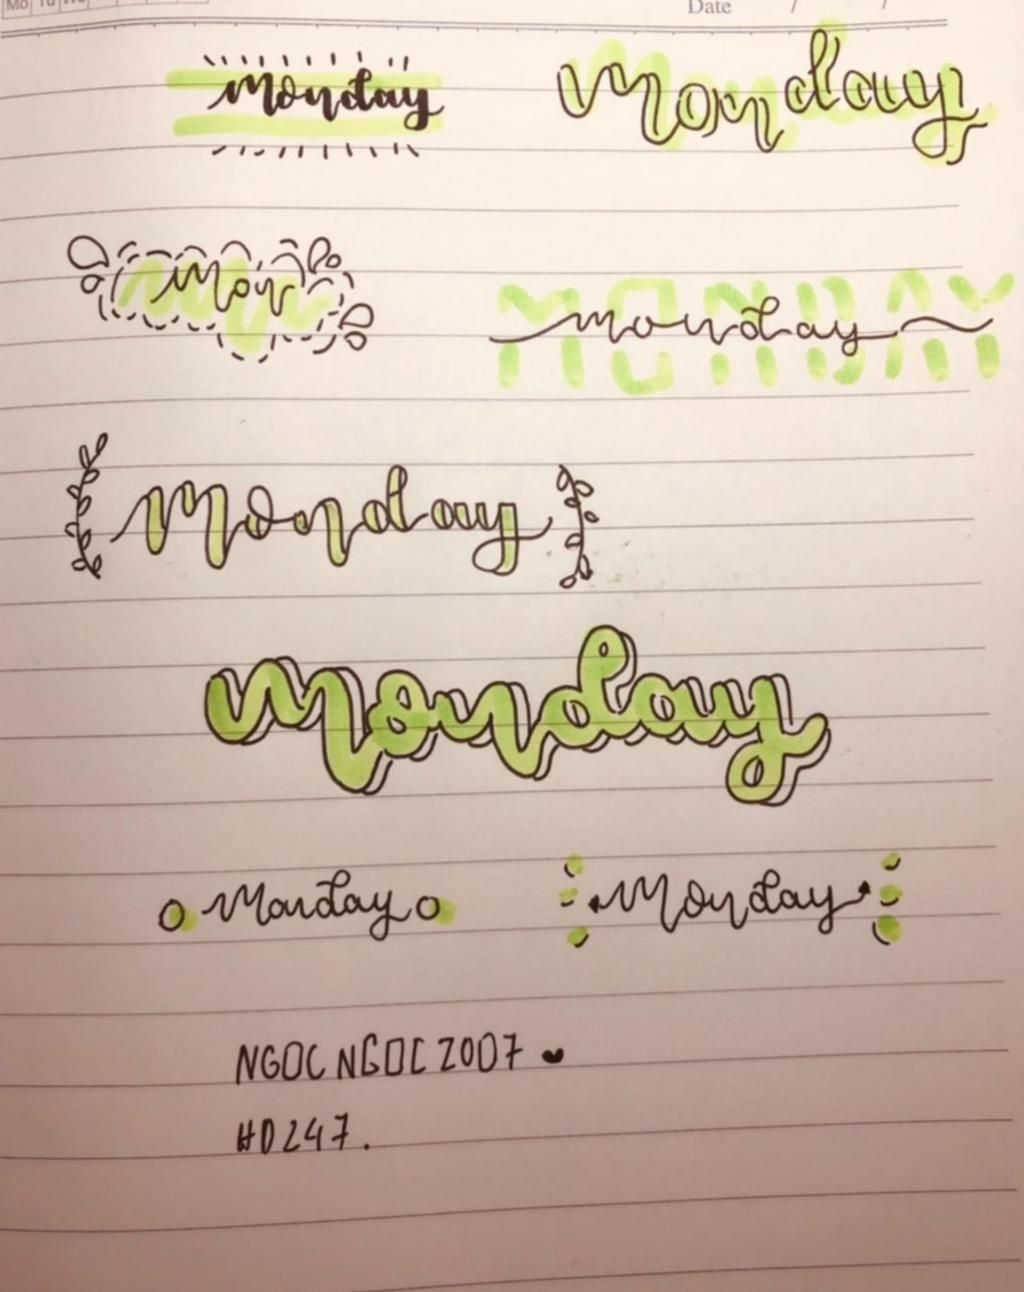 Mo Tu We
Date / /
monday
Monday
Mon
MONDAY
monday
Monday
Monday
Monday
Monday
NGOC NGOC 2007
HD247.